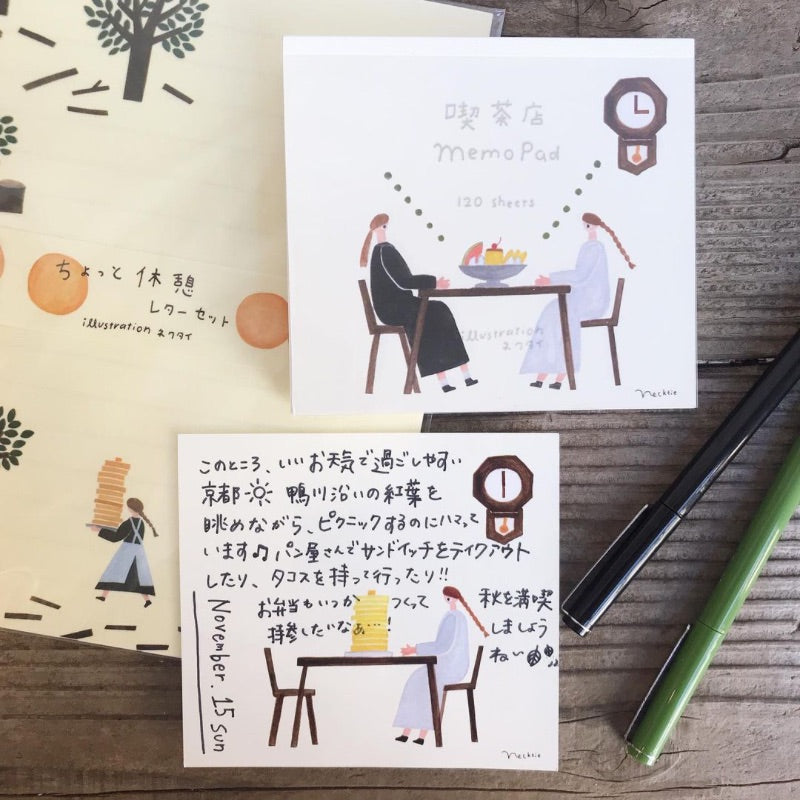 喫茶店
memo Pad
120 sheets
illustration
ネクタイ
necktie
ちょっと休憩
レターセット
illustration ネクタイ
このところ、いいお天気で過ごしやすい
京都☀ 鴨川沿いの紅葉を
眺めながら、ピクニックするのにハマって
います♫ パン屋さんでサンドイッチをテイクアウト
したり、タコスを持って行ったり!!
お弁当もいつか つくって
持参したいなぁ…!
秋を満喫
しましょう
ねぃ
November. 15 sun
necktie